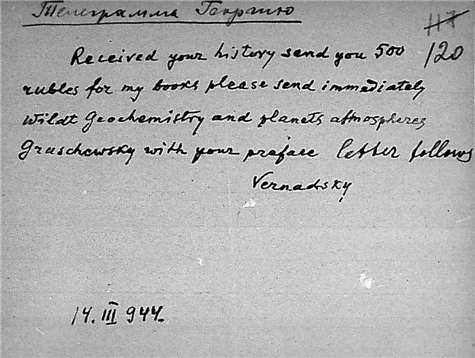 Телеграмма Георгию
120
Received your history send you 500
rubles for my books please send immediately
Wildt Geochemistry and planets atmospheres
Gruschewsky with your preface letter follows
Vernadsky
14.III 944.